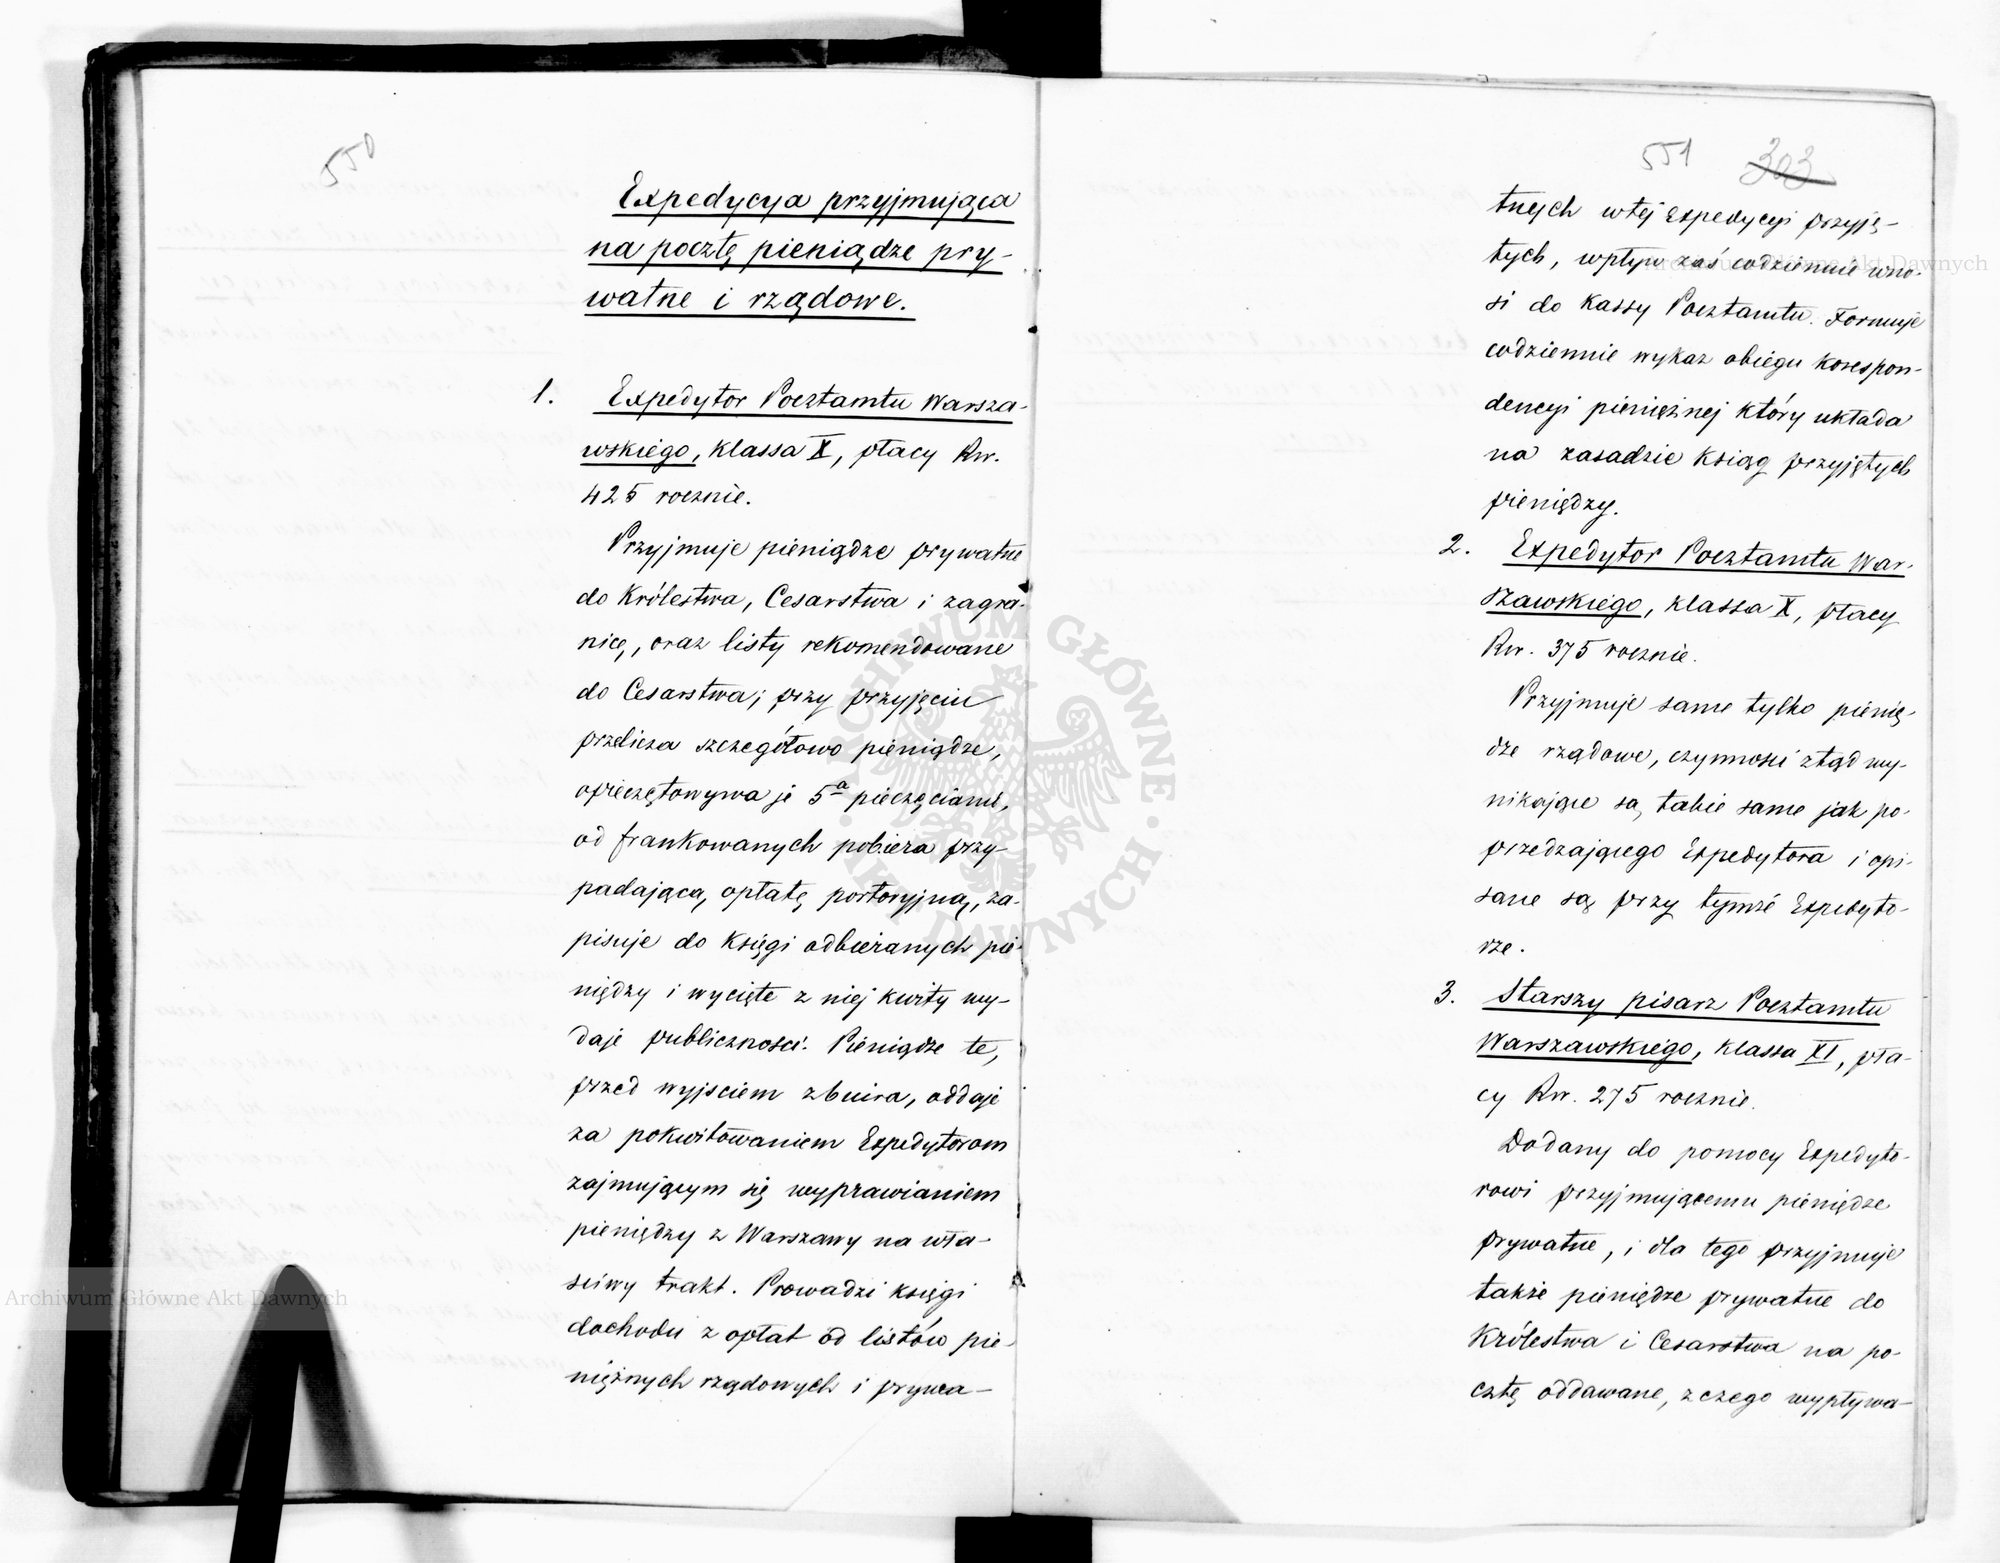 550
Expedycya przyjmująca
na pocztę pieniądze pry-
watne i rządowe.
1. Expedytor Pocztamtu Warsza-
wskiego, klassa X, płacy Rsr.
425 rocznie.
Przyjmuje pieniądze prywatne
do Królestwa, Cesarstwa i zagra-
nicę, oraz listy rekomendowane
do Cesarstwa; przy przyjęciu
przelicza szczegółowo pieniądze,
opieczętowywa je 5ᵃ pieczęciami,
od frankowanych pobiera przy-
padającą opłatę portoryjną, za-
pisuje do księgi odbieranych pie-
niędzy i wycięte z niej kwity wy-
daje publiczności. Pieniądze te,
przed wyjściem z biura, oddaje
za pokwitowaniem Expedytorom
zajmującym się wyprawianiem
pieniędzy z Warszawy na wła-
ściwy trakt. Prowadzi księgi
dochodu z opłat od listów pie-
niężnych rządowych i prywa-
551 303
tnych w tej Expedycyi przyję-
tych, wpływ zaś codziennie wno-
si do Kassy Pocztamtu. Formuje
codziennie wykaz obiegu korespon-
dencyi pieniężnej który układa
na zasadzie ksiąg przyjętych
pieniędzy.
2. Expedytor Pocztamtu War-
szawskiego, klassa X, płacy
Rsr. 375 rocznie.
Przyjmuje same tylko pienię-
dze rządowe, czynności ztąd wy-
nikające są takie same jak po-
przedzającego Expedytora i opi-
sane są przy tymże Expedyto-
rze.
3. Starszy pisarz Pocztamtu
Warszawskiego, klassa XI, pła-
cy Rsr. 275 rocznie.
Dodany do pomocy Expedyto-
rowi przyjmującemu pieniędze
prywatne, i dla tego przyjmuje
także pieniędze prywatne do
Królestwa i Cesarstwa na po-
cztę oddawane, z czego wypływa-
Archiwum Główne Akt Dawnych
Archiwum Główne Akt Dawnych
ARCHIWUM GŁÓWNE AKT DAWNYCH